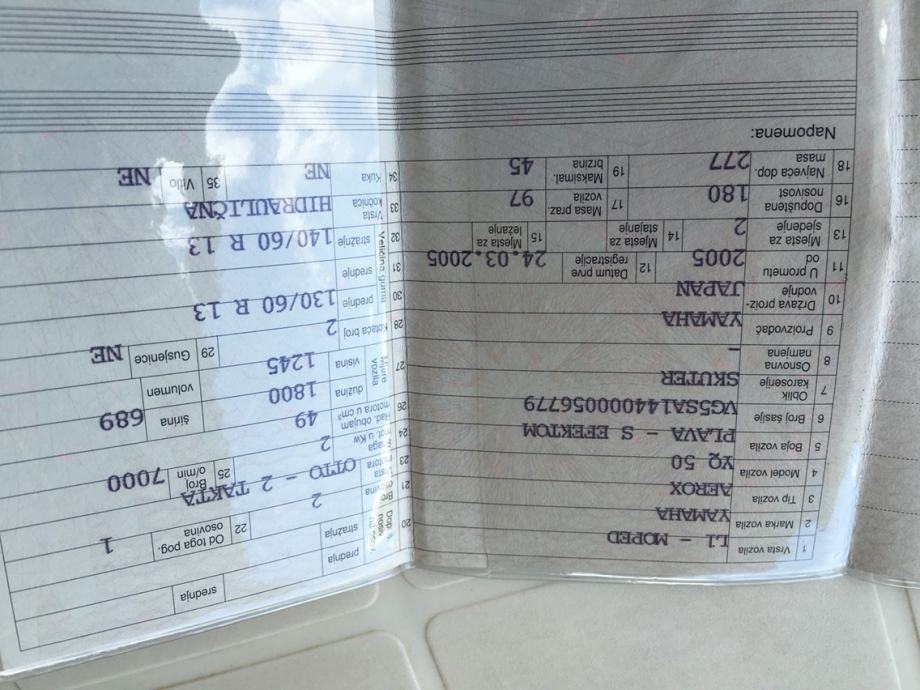 1 Vrsta vozila L1 - MOPED
2 Marka vozila YAMAHA
3 Tip vozila AEROX
4 Model vozila YQ 50
5 Boja vozila PLAVA - S EFEKTOM
6 Broj šasije VG5SA144000056779
7 Oblik karoserije SKUTER
8 Osnovna namjena -
9 Proizvođač YAMAHA
10 Država proiz-vodnje JAPAN
11 U prometu od 2005 12 Datum prve registracije 24.03.2005
13 Mjesta za sjedenje 2 14 Mjesta za stajanje 15 Mjesta za ležanje
16 Dopuštena nosivost 180 17 Masa praz. vozila 97
18 Najveća dop. masa 277 19 Maksimal. brzina 45
Napomena:
20 Dop. prednja
stražnja srednja
21 2 22 Od toga pog. osovina 1
23 Vrsta motora OTTO - 2 TAKTA
24 Snaga mot. u Kw 2 25 Broj o/min 7000
26 Rad. obujam motora u cm³ 49
27 Mjere vozila dužina 1800 širina 689
visina 1245 volumen
28 Kotača broj 2 29 Gusjenice NE
Veličina guma
30 prednje 130/60 R 13
31 srednje
32 stražnje 140/60 R 13
33 Vrsta kočnica HIDRAULIČNA
34 Kuka NE 35 Vitlo NE